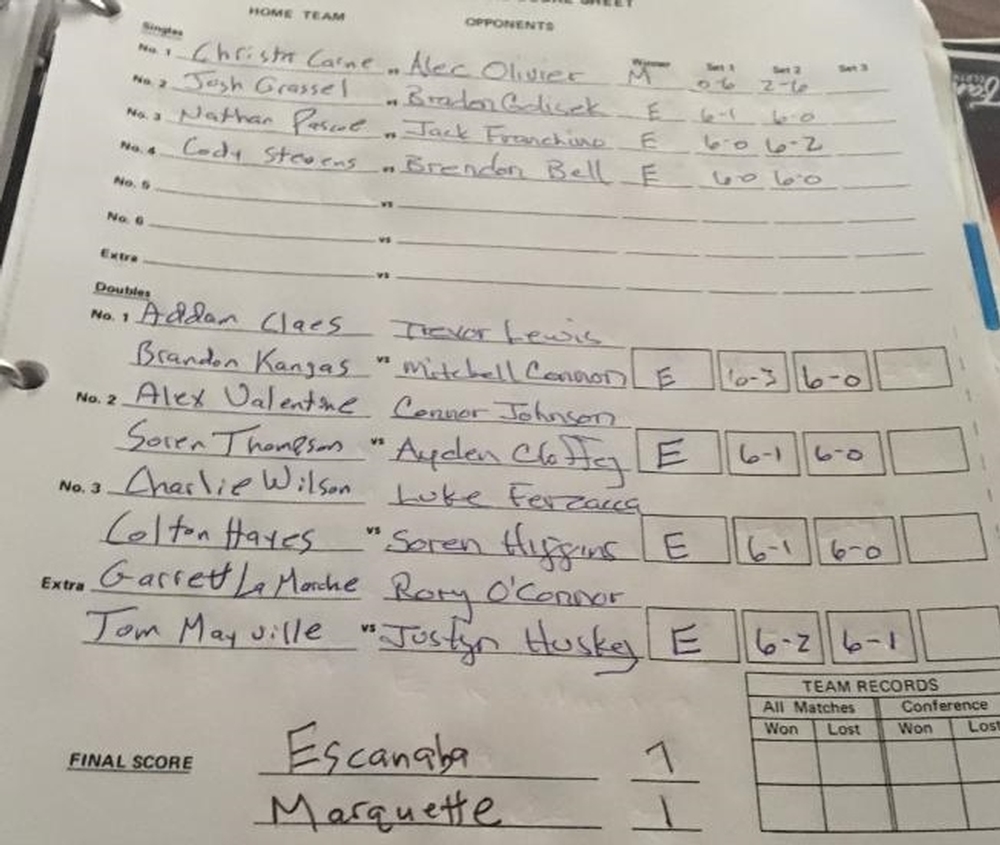 SCORE SHEET
HOME TEAM OPPONENTS
Singles Winner Set 1 Set 2 Set 3
No. 1 Christn Carne vs Alec Olivier M 0-6 2-6
No. 2 Josh Grassel vs Bradon E 6-1 6-0
No. 3 Nathan Pascoe vs Jack Franchino E 6-0 6-2
No. 4 Cody Stevens vs Brendon Bell E 6-0 6-0
No. 5 vs
No. 6 vs
Extra vs
Doubles
No. 1 Addam Claes Trevor Lewis
Brandon Kangas vs Mitchell Connon E 6-3 6-0
No. 2 Alex Valentine Connor Johnson
Soren Thompson vs Ayden E 6-1 6-0
No. 3 Charlie Wilson Luke Ferzacca
Colton Hayes vs Soren Higgins E 6-1 6-0
Extra Garrett La Marche Rory O'Connor
Tom Mayville vs Jostyn Huskey E 6-2 6-1
TEAM RECORDS
All Matches Conference
Won Lost Won Lost
FINAL SCORE Escanaba 7
Marquette 1